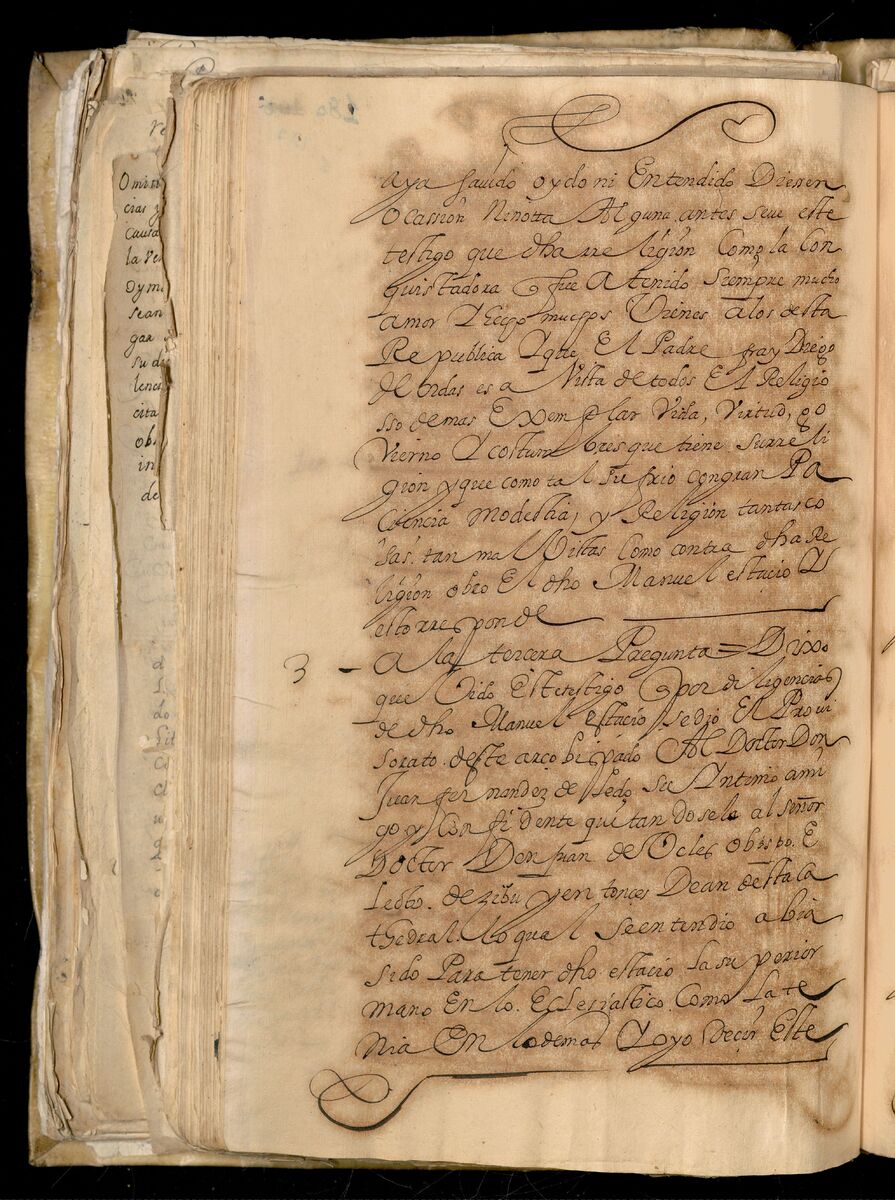 aya sauido oydo ni Entendido Diessen
Ocassion Ninotta Alguna antes seve este
testigo que dha rreligion Como la Con
quistadora q fue A tenido Siempre mucho
amor Y hecho muchos Vienes a los desta
Republica Y que El Padre fray Diego
de ordas es a Vista de todos El Religio
sso de mas Exemplar Vida, Virtud, go
Vierno Y costumbres que tiene su rreli
gion y que como tal sufrio con gran Pa
Ciencia Modestia, y Religion tantas co
sas tan mal Vistas Como contra dha Re
ligion obro El dho Manuel estacio Y
esto rresponde
3 - A la tercera Pregunta = Dixo
que Vido Este testigo q por diligencias
de dho Manuel estacio se dio El Provi
sorato deste arcobispado Al Doctor Don
Juan fernandez de Ledo Su Yntimo ami
go y Confidente quitandosele al señor
Doctor Don Juan de Veles obispo E
Lecto de zibu y entonces Dean desta Ca
thedral. Lo qual se entendio abia
sido Para tener dho estacio La superior
mano En lo Eclesiastico Como La te
nia En lo demas Y oyo Decir Este
Omiti
cias y
causa
oy mi
sean
gar
su di
cita
ob
in
de